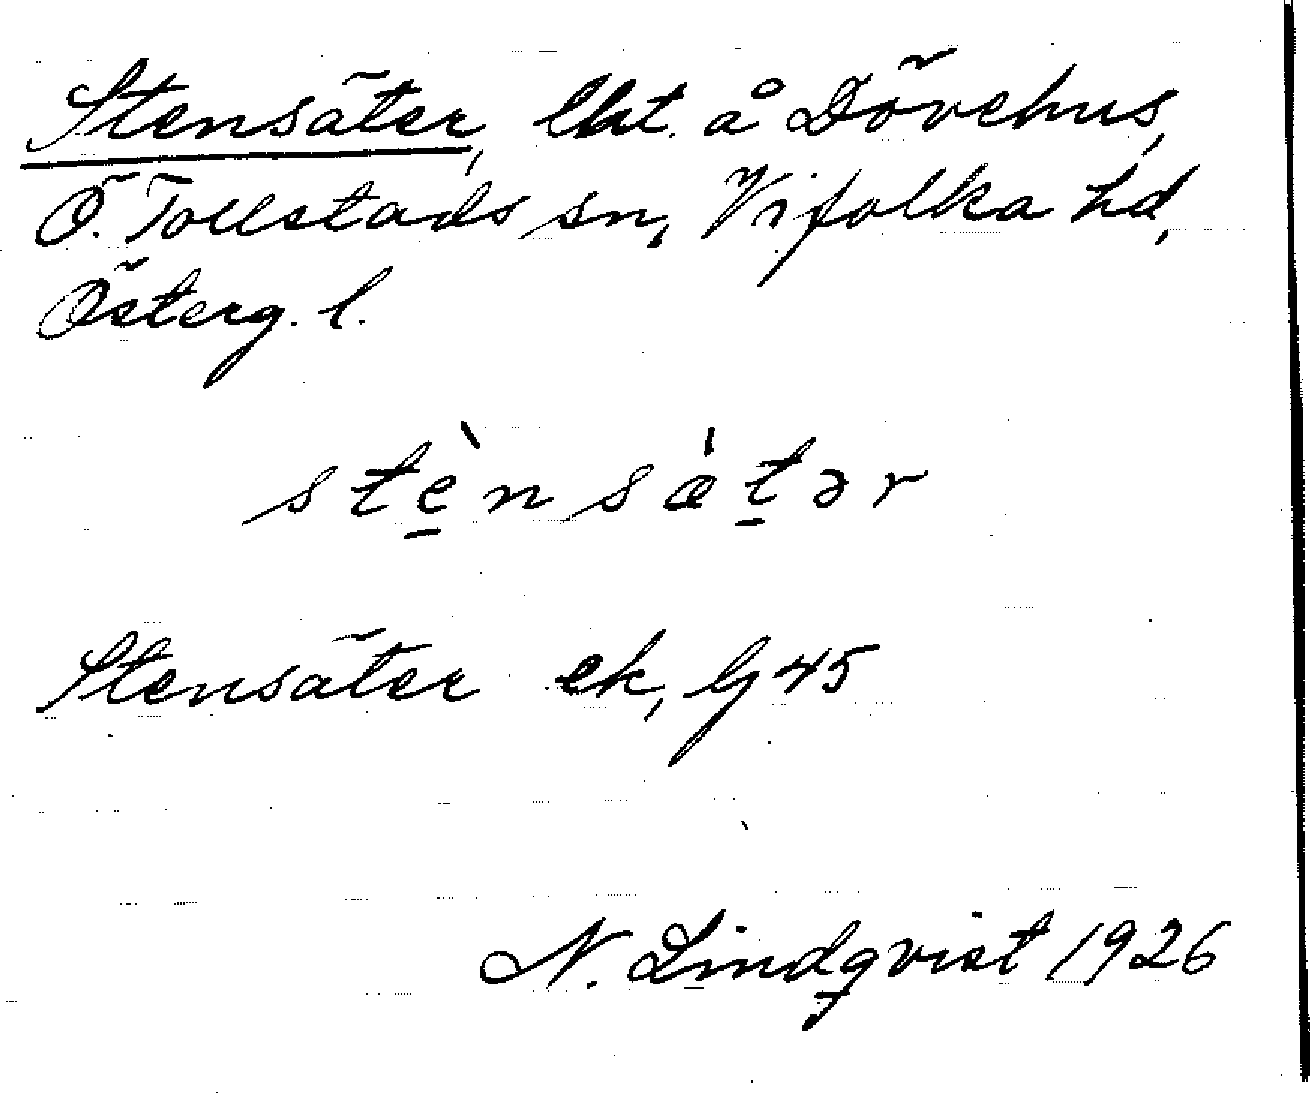 Stensäter, lht. å Dövehus,
Ö. Tollstads sn, Vifolka hd,
Österg. l.
stè̠nsæ̍t̠ər
Stensäter ek, Gj 45
N. Lindqvist 1926